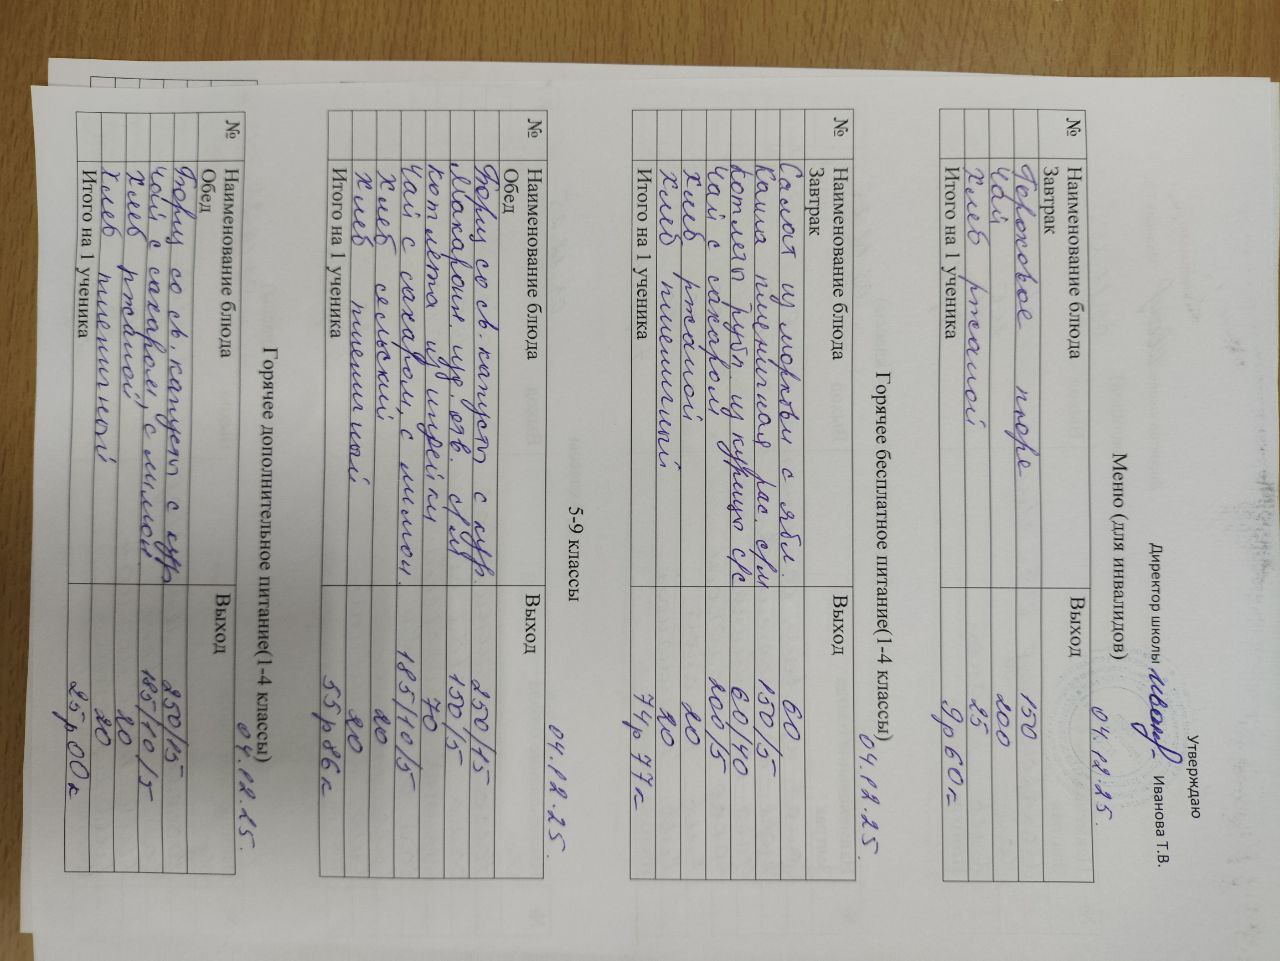 Утверждаю
Директор школы Иванова Т.В.
04.12.25.
Меню (для инвалидов)
№ Наименование блюда Выход
Завтрак
Гороховое пюре 150
Чай 200
Хлеб ржаной 25
Итого на 1 ученика 9р60к
04.12.25.
Горячее бесплатное питание(1-4 классы)
№ Наименование блюда Выход
Завтрак
Салат из моркови с ябл. 60
Каша пшеничная рас. с/м 150/5
Котлеты рубл. из курицы с/с 60/40
Чай с сахаром 200/5
Хлеб ржаной 20
Хлеб пшеничный 20
Итого на 1 ученика 74р 77к
04.12.25.
5-9 классы
№ Наименование блюда Выход
Обед
Борщ со св. капусты с кур. 250/15
Макарон. изд. отв. с/м 150/5
Котлета из индейки 70
Чай с сахаром, с лимон. 185/10/5
Хлеб сельский 20
Хлеб пшеничный 20
Итого на 1 ученика 55р86к
04.12.25.
Горячее дополнительное питание(1-4 классы)
№ Наименование блюда Выход
Обед
Борщ со св. капусты с кур 250/15
Чай с сахаром, с лимон. 185/10/5
Хлеб ржаной 20
Хлеб пшеничный 20
Итого на 1 ученика 25р00к